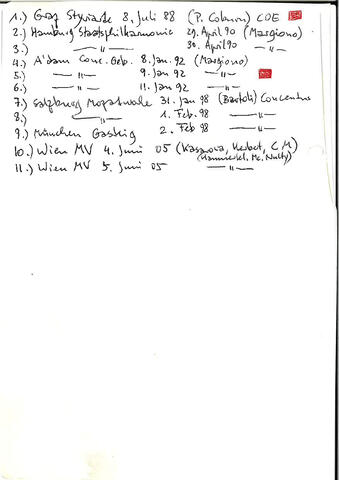 1.) Graz Styriarte 8. Juli 88 (P. Coburn) COE
2.) Hamburg Staatsphilharmonie 29. April 90 (Margiono)
3.) —〃— 30. April 90 —〃—
4.) A'dam Conc. Geb. 8. Jan. 92 (Margiono)
5.) —〃— 9. Jan 92 —〃—
6.) —〃— 11. Jan 92 —〃—
7.) Salzburg Mozartwoche 31. Jan 98 (Bartoli) Concentus
8.) —〃— 1. Feb. 98 —〃—
9.) München Gasteig 2. Feb 98 —〃—
10.) Wien MV 4. Juni 05 (Kasarova, Herbst, C M)
(Hammerdel, Mc. Nulty)
11.) Wien MV 5. Juni 05 —〃—